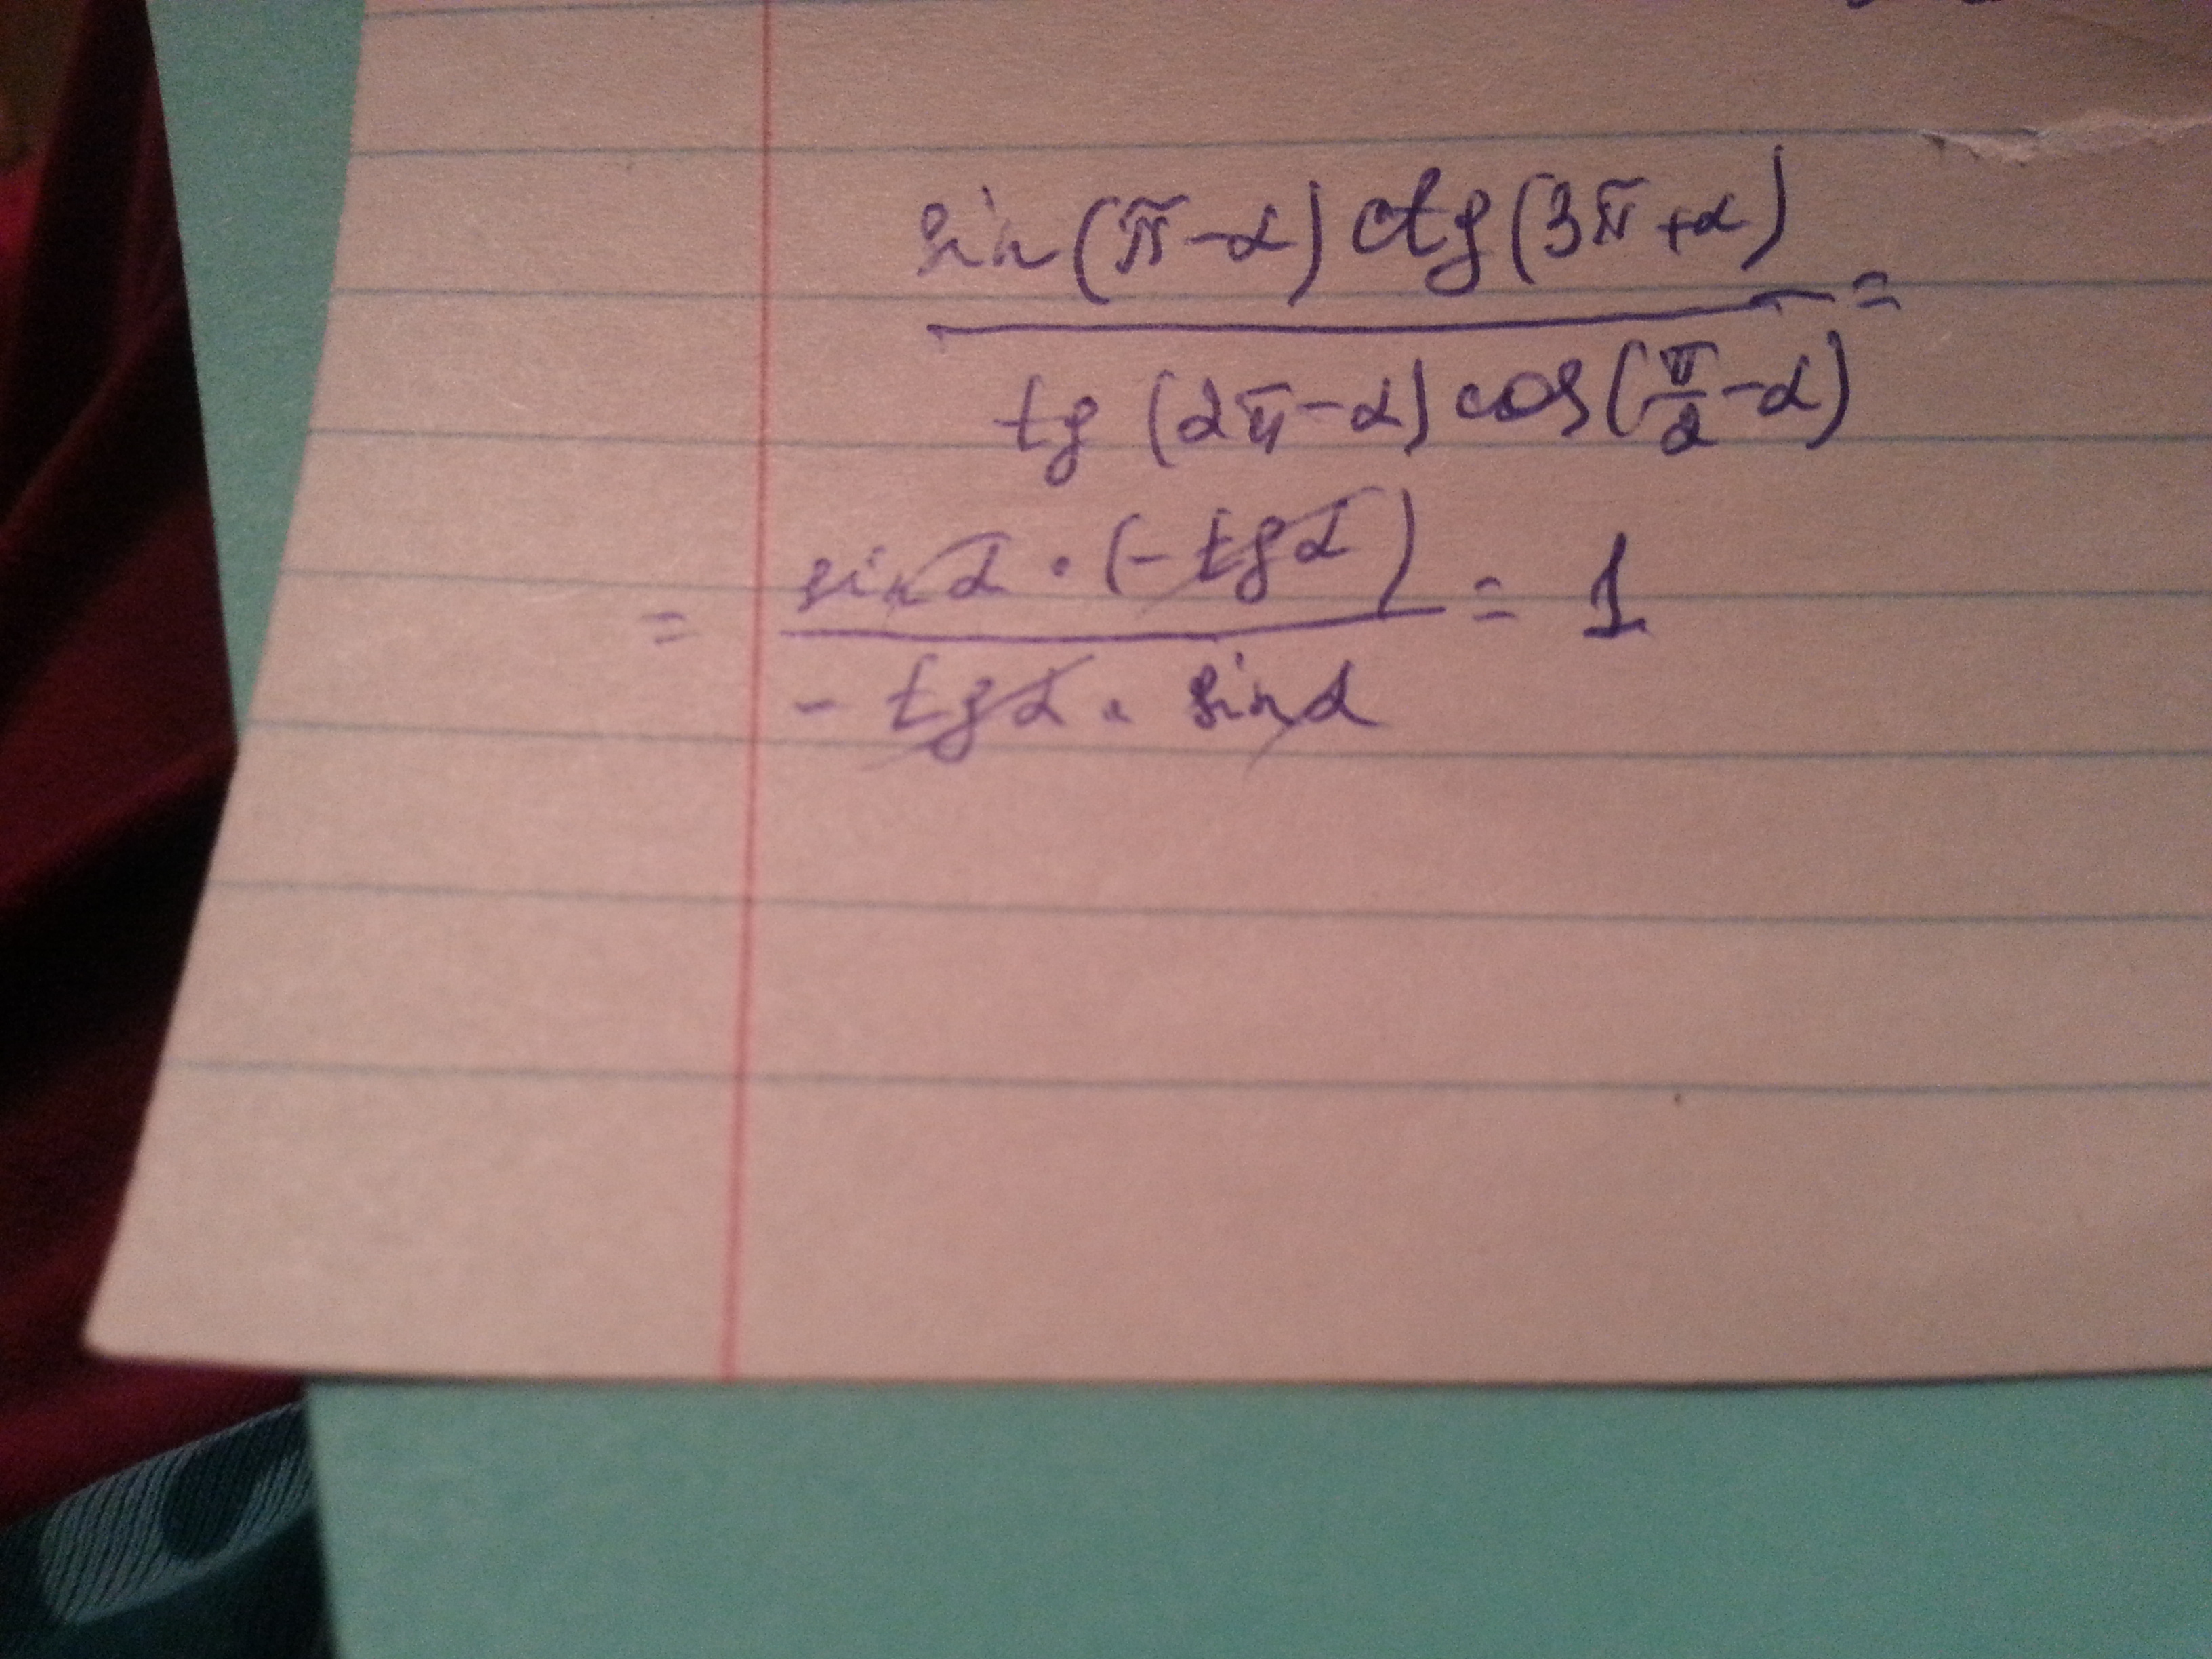 sin(π-α) ctg(3π+α)
=
tg (2π-α) cos(π/2-α)
= sinα · (-tgα) = 1
- tgα · sinα